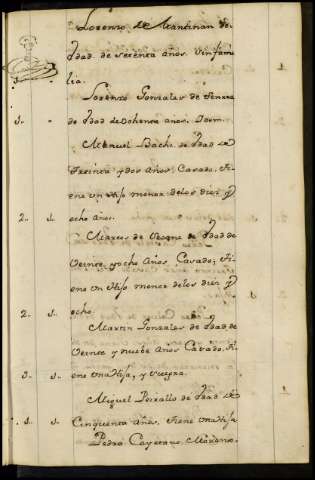 Lorenzo de
Edad de Setenta años. Sin fami
3. - lia.
Lorenzo Gonzales de
3. - de Edad de Ochenta años. Idem.
Manuel de Edad de
Treinta y dos años, Casado, tie
ne un Hijo menor de los diez y
2. 1. ocho años.
Marcos de de Edad de
Veinte y ocho años Casado, tie
ne un Hijo menor de los diez y
2. 1. ocho.
Martin Gonzales de Edad de
Veinte y nueve años Casado, ti
3. 1. ene una Hija, y Suegra.
Miguel de Edad de
1. 1. Cinquenta años, tiene una Hija
Pedro Cayetano